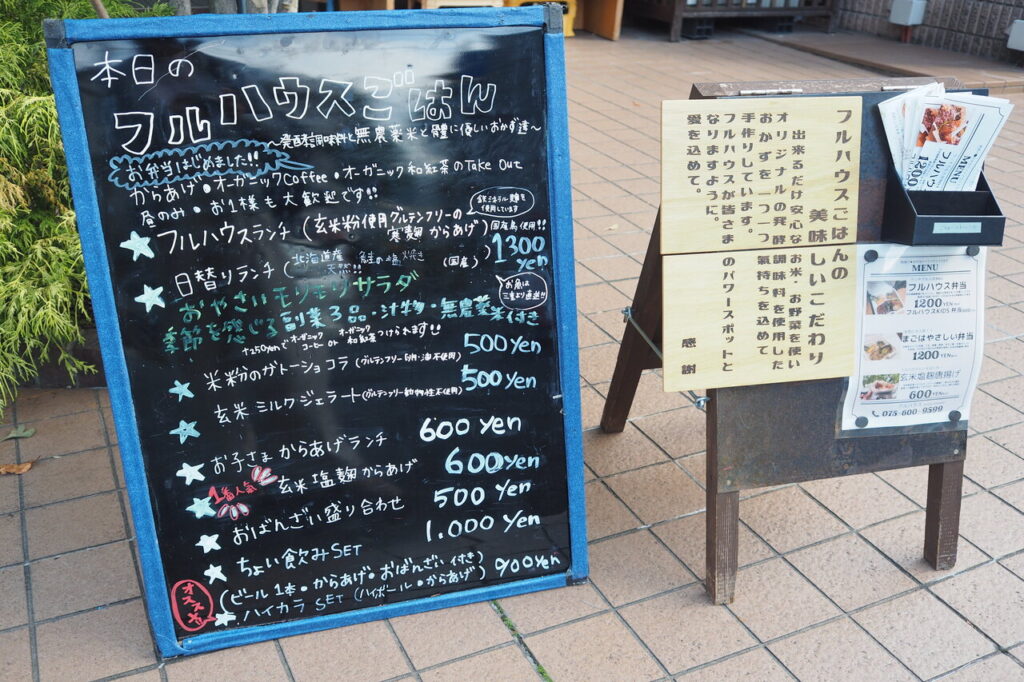 本日の
フルハウスごはん
〜発酵調味料と無農薬米と體に優しいおかず達〜
お弁当はじめました!!
からあげ・オーガニックCoffee・オーガニック和紅茶のTake Out
昼のみ・お1樣も大歓起です!!
フルハウスランチ(玄米粉使用グルテンフリーの
寒麹からあげ)
使用しています
国産鳥使用!!
1300 yen
日替りランチ(北海道産
天然!!
鮭の塩焼き
(国産)
お魚は
三重より直送!!
おやさいモリモリサラダ
季節を感じる副菜3品・汁物・無農薬米付き
+250yenでオーガニック
コーヒー or オーガニック
和紅茶 つけられます!!
米粉のガトーショコラ(グルテンフリー 卵・油不使用) 500 yen
玄米ミルクジェラート(グルテンフリー 動物性不使用) 500 yen
お子さまからあげランチ 600 yen
1番人気
玄米塩麹からあげ 600 yen
おばんざい盛り合わせ 500 yen
ちょい飲みSET 1.000 yen
(ビール1本・からあげ・おばんざい付き)
オススメ
ハイカラSET(ハイボール・からあげ) 900 yen
フルハウスごはんの
美味しいこだわり
出来るだけ安心なお米・お野菜を使い
オリジナルの発酵調味料を使用した
おかずを一つ一つ氣持ちを込めて
手作りしています。
フルハウスが皆さまのパワースポットと
なりますように。
愛を込めて。
感謝
MENU
フルハウス
1200
MENU
フルハウス弁当
1200YEN
フルハウスKIDS弁当
まごはやさしい弁当
1200YEN
玄米塩麹唐揚げ
600YEN
075-600-9599